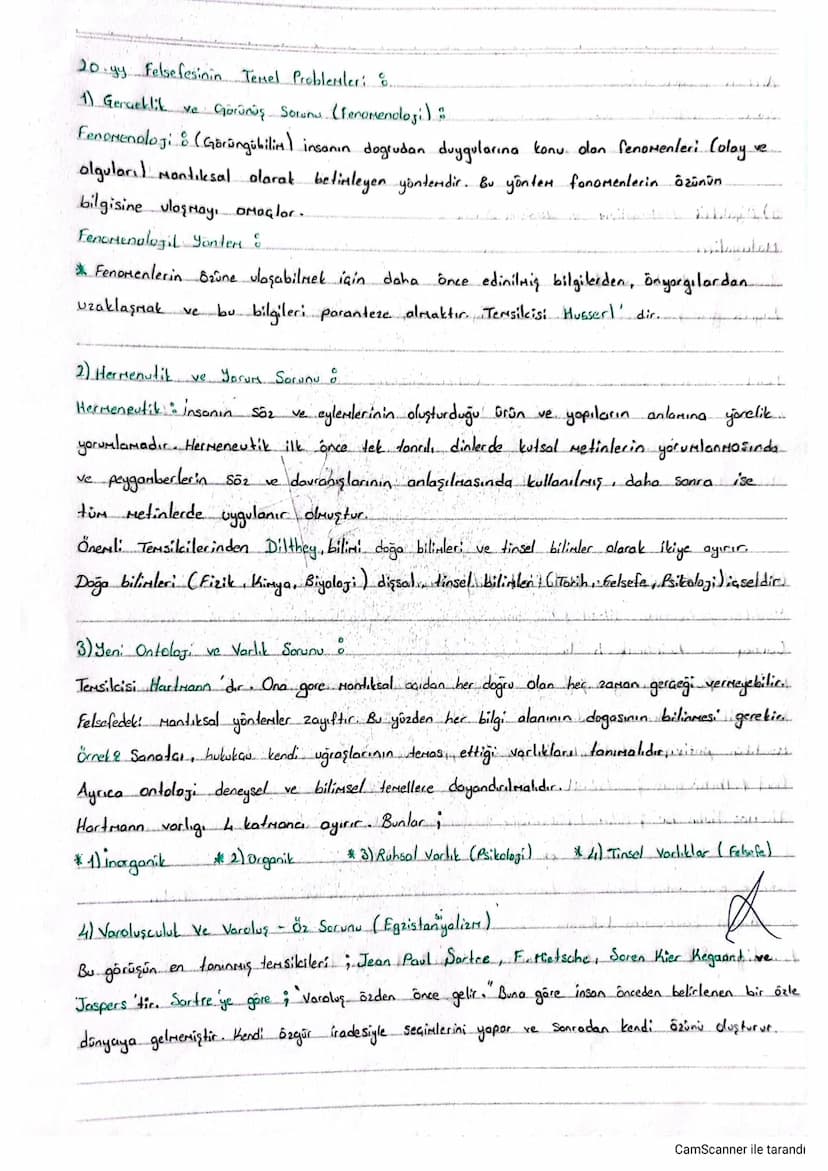 20.yy Felsefesinin Temel Problemleri :
1) Gerçeklik ve Görünüş Sorunu (Fenomenoloji) :
Fenomenoloji : (Görüngübilim) insanın dogrudan duygularına konu olan fenomenleri (olay ve
olguları) mantıksal olarak betimleyen yöntemdir. Bu yöntem fonomenlerin özünün
bilgisine ulaşmayı amaçlar.
Fenomenolojik Yöntem :
* Fenomenlerin özüne ulaşabilmek için daha önce edinilmiş bilgilerden, önyargılardan
uzaklaşmak ve bu bilgileri paranteze almaktır. Temsilcisi Husserl' dir.
2) Hermenutik ve Yorum Sorunu :
Hermeneutik : insanın söz ve eylemlerinin oluşturduğu ürün ve yapıların anlamına yönelik
yorumlamadır. Hermeneutik ilk önce tek tanrılı dinlerde kutsal metinlerin yorumlanmasında
ve peygamberlerin söz ve davranışlarının anlaşılmasında kullanılmış, daha sonra ise
tüm metinlerde uygulanır olmuştur.
Önemli Temsilcilerinden Dilthey, bilimi doğa bilimleri ve tinsel bilimler olarak ikiye ayırır.
Doğa bilimleri (Fizik, Kimya, Biyoloji) dışsal, tinsel bilimler (Tarih, Felsefe, Psikoloji) içseldir.
3) Yeni Ontoloji ve Varlık Sorunu :
Temsilcisi Hartmann 'dır. Ona gore mantıksal açıdan her doğru olan her zaman gerçeği vermeyebilir.
Felsefedeki mantıksal yöntemler zayıftır. Bu yüzden her bilgi alanının dogasının bilinmesi gerekir.
Örnek : Sanatçı, hukukçu kendi uğraşlarının temas ettiği varlıkları tanımalıdır.
Ayrıca ontoloji deneysel ve bilimsel temellere dayandırılmalıdır.
Hartmann varlığı 4 katmana ayırır. Bunlar ;
* 1) inorganik * 2) Organik * 3) Ruhsal Varlık (Psikoloji) * 4) Tinsel Varlıklar (Felsefe)
4) Varoluşculuk Ve Varoluş - Öz Sorunu (Egzistansiyalizm)
Bu görüşün en tanınmış temsilcileri ; Jean Paul Sartre, F. Nietsche, Soren Kier Kegaant ve
Jaspers 'tir. Sartre'ye göre ; "Varoluş özden önce gelir." Buna göre insan önceden belirlenen bir özle
dünyaya gelmemiştir. Kendi özgür iradesiyle seçimlerini yapar ve sonradan kendi özünü oluşturur.
CamScanner ile tarandı